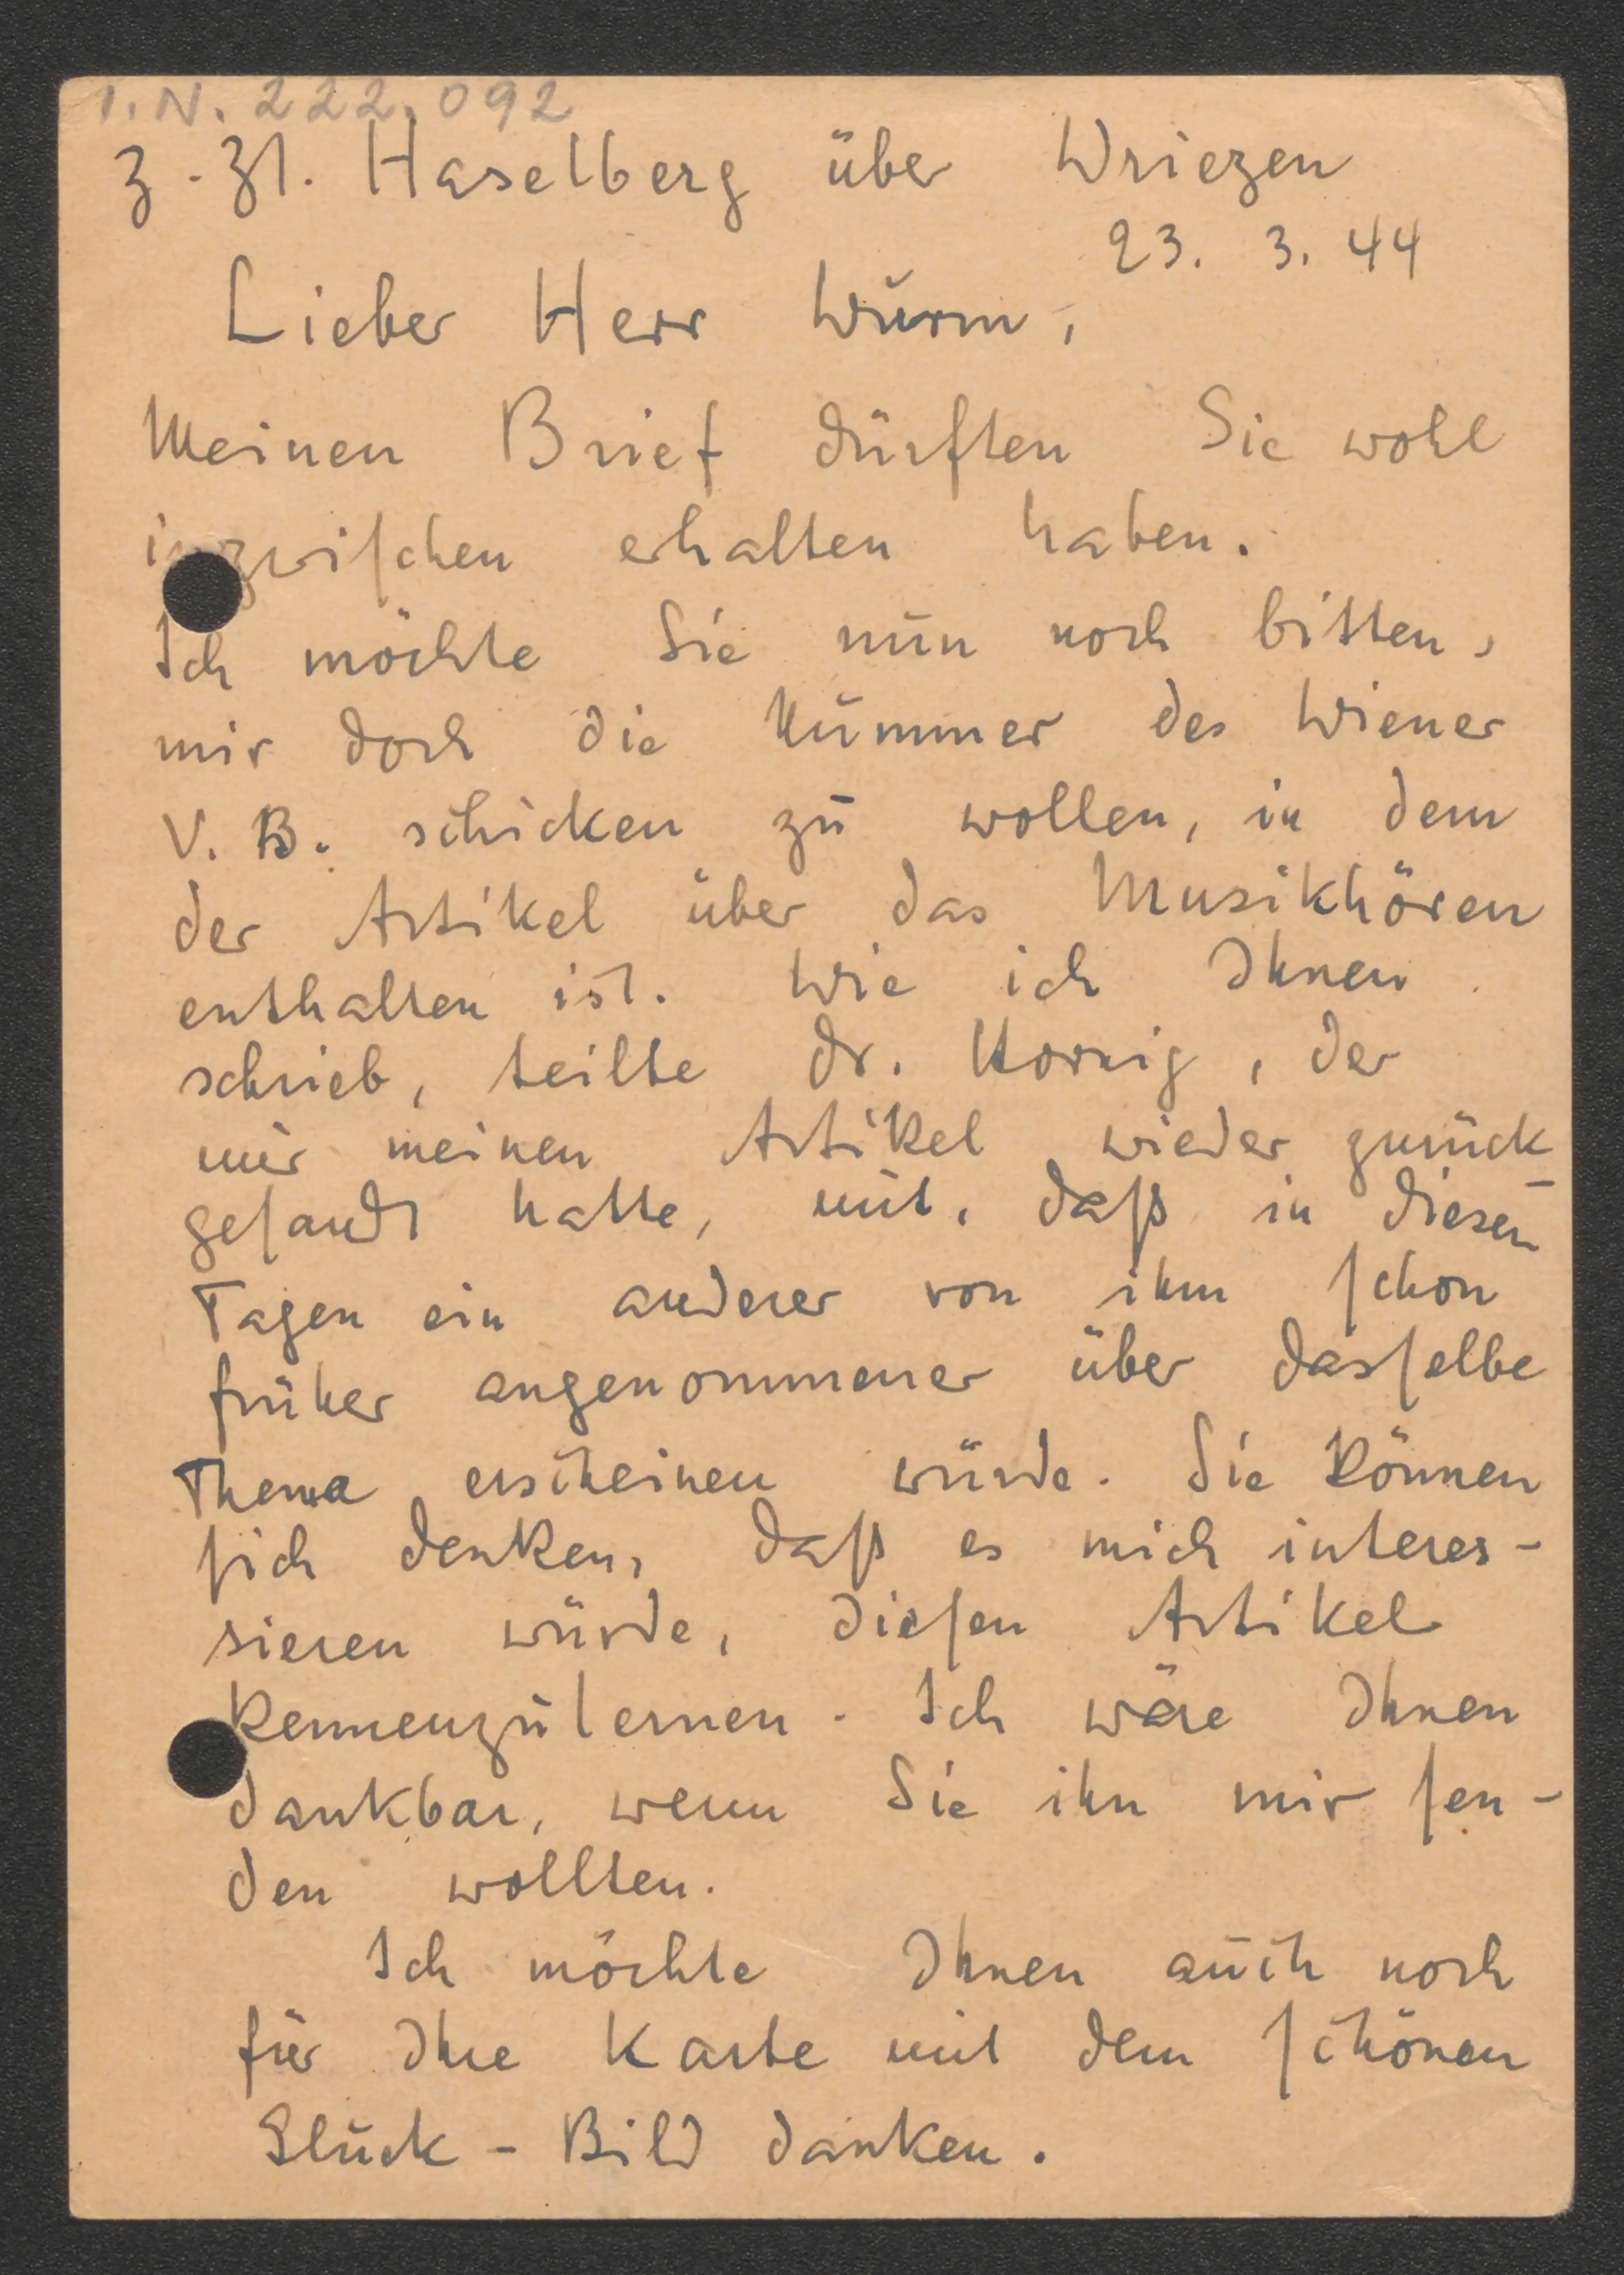 I.N. 222.092
z. Zt. Haselberg über Wriezen
23. 3. 44
Lieber Herr Wurm,
Meinen Brief dürften Sie wohl
inzwischen erhalten haben.
Ich möchte Sie nun noch bitten,
mir doch die Nummer des Wiener
V. B. schicken zu wollen, in dem
der Artikel über das Musikhören
enthalten ist. Wie ich Ihnen
schrieb, teilte Dr. , der
mir meinen Artikel wieder zurück
gesandt hatte, mit, daß in diesen
Tagen ein anderer von ihm schon
früher angenommener über dasselbe
Thema erscheinen würde. Sie können
sich denken, daß es mich interes-
sieren würde, diesen Artikel
kennenzulernen. Ich wäre Ihnen
dankbar, wenn Sie ihn mir sen-
den wollten.
Ich möchte Ihnen auch noch
für Ihre Karte mit dem schönen
Gluck - Bild danken.